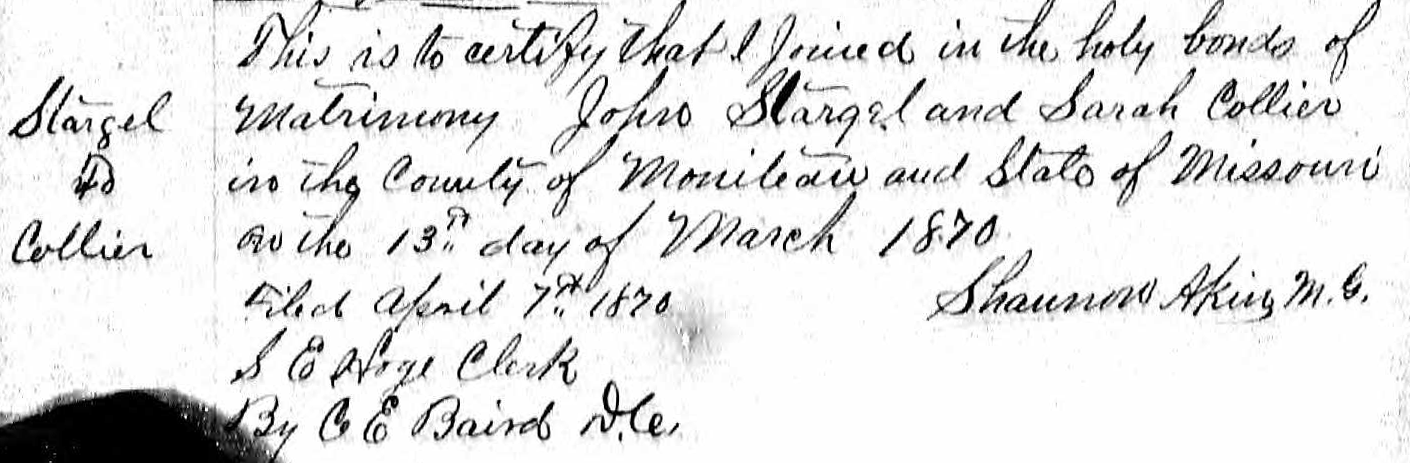 This is to certify that I Joined in the holy bonds of
Stargel Matrimony John Stargel and Sarah Collier
To in the County of Moniteau and State of Missouri
Collier on the 13th day of March 1870
Filed April 7th 1870 Shannon Akin M.G.
S E Hoge Clerk
By C E Baird D.C.